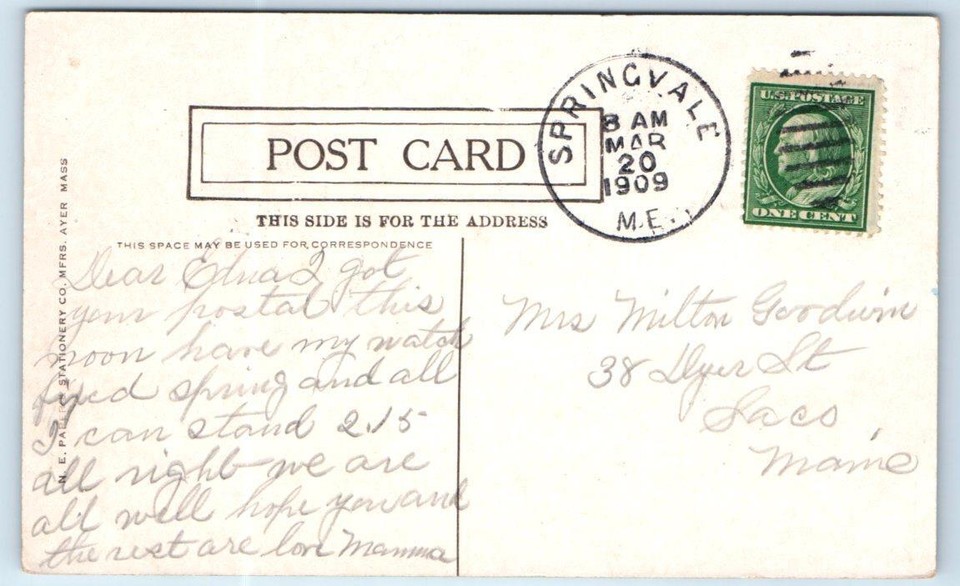 SPRINGVALE
8 AM
MAR
20
1909
ME.
U.S. POSTAGE
ONE CENT
POST CARD
THIS SIDE IS FOR THE ADDRESS
THIS SPACE MAY BE USED FOR CORRESPONDENCE
N. E. PAPER & STATIONERY CO. MFRS. AYER MASS
Dear Edna I got
your postal this
noon have my watch
fixed spring and all
I can stand 2.15
all right we are
all well hope you and
the rest are love Mamma
Mrs Milton Goodwin
38 Dyer St
Saco
Maine